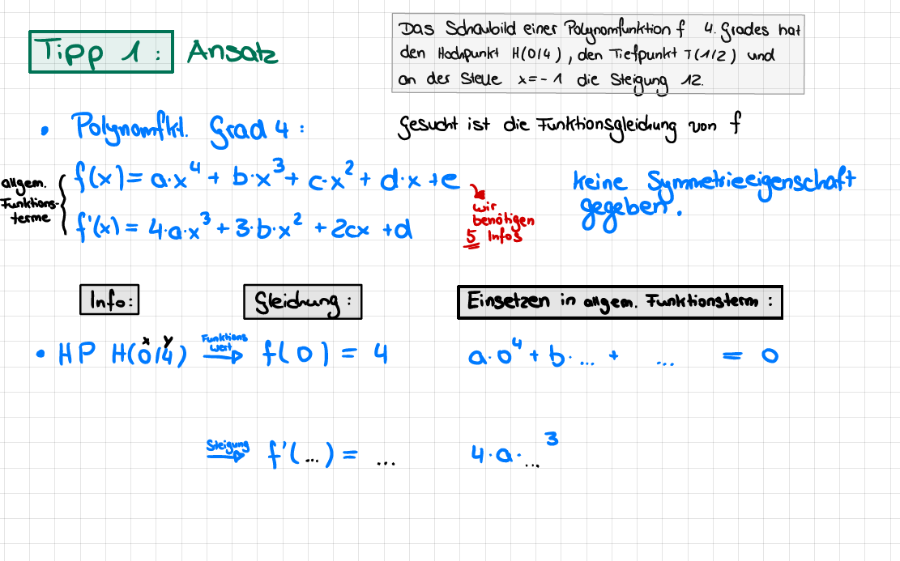 Tipp 1: Ansatz
Das Schaubild einer Polynomfunktion f 4. Grades hat
den Hochpunkt H(0/4), den Tiefpunkt T(1/2) und
an der Stelle x=-1 die Steigung 12.
• Polynomfkt. Grad 4:
Gesucht ist die Funktionsgleichung von f
allgem.
Funktions-
terme
f(x) = a·x⁴ + b·x³ + c·x² + d·x + e
f'(x) = 4·a·x³ + 3·b·x² + 2cx + d
wir
benötigen
5 Infos
keine Symmetrieeigenschaft
gegeben.
Info:
Gleichung:
Einsetzen in allgem. Funktionsterm:
x y
• HP H(0/4) Funktions
wert f(0) = 4 a·0⁴ + b·... + ... = 0
Steigung f'(...) = ... 4·a·...³